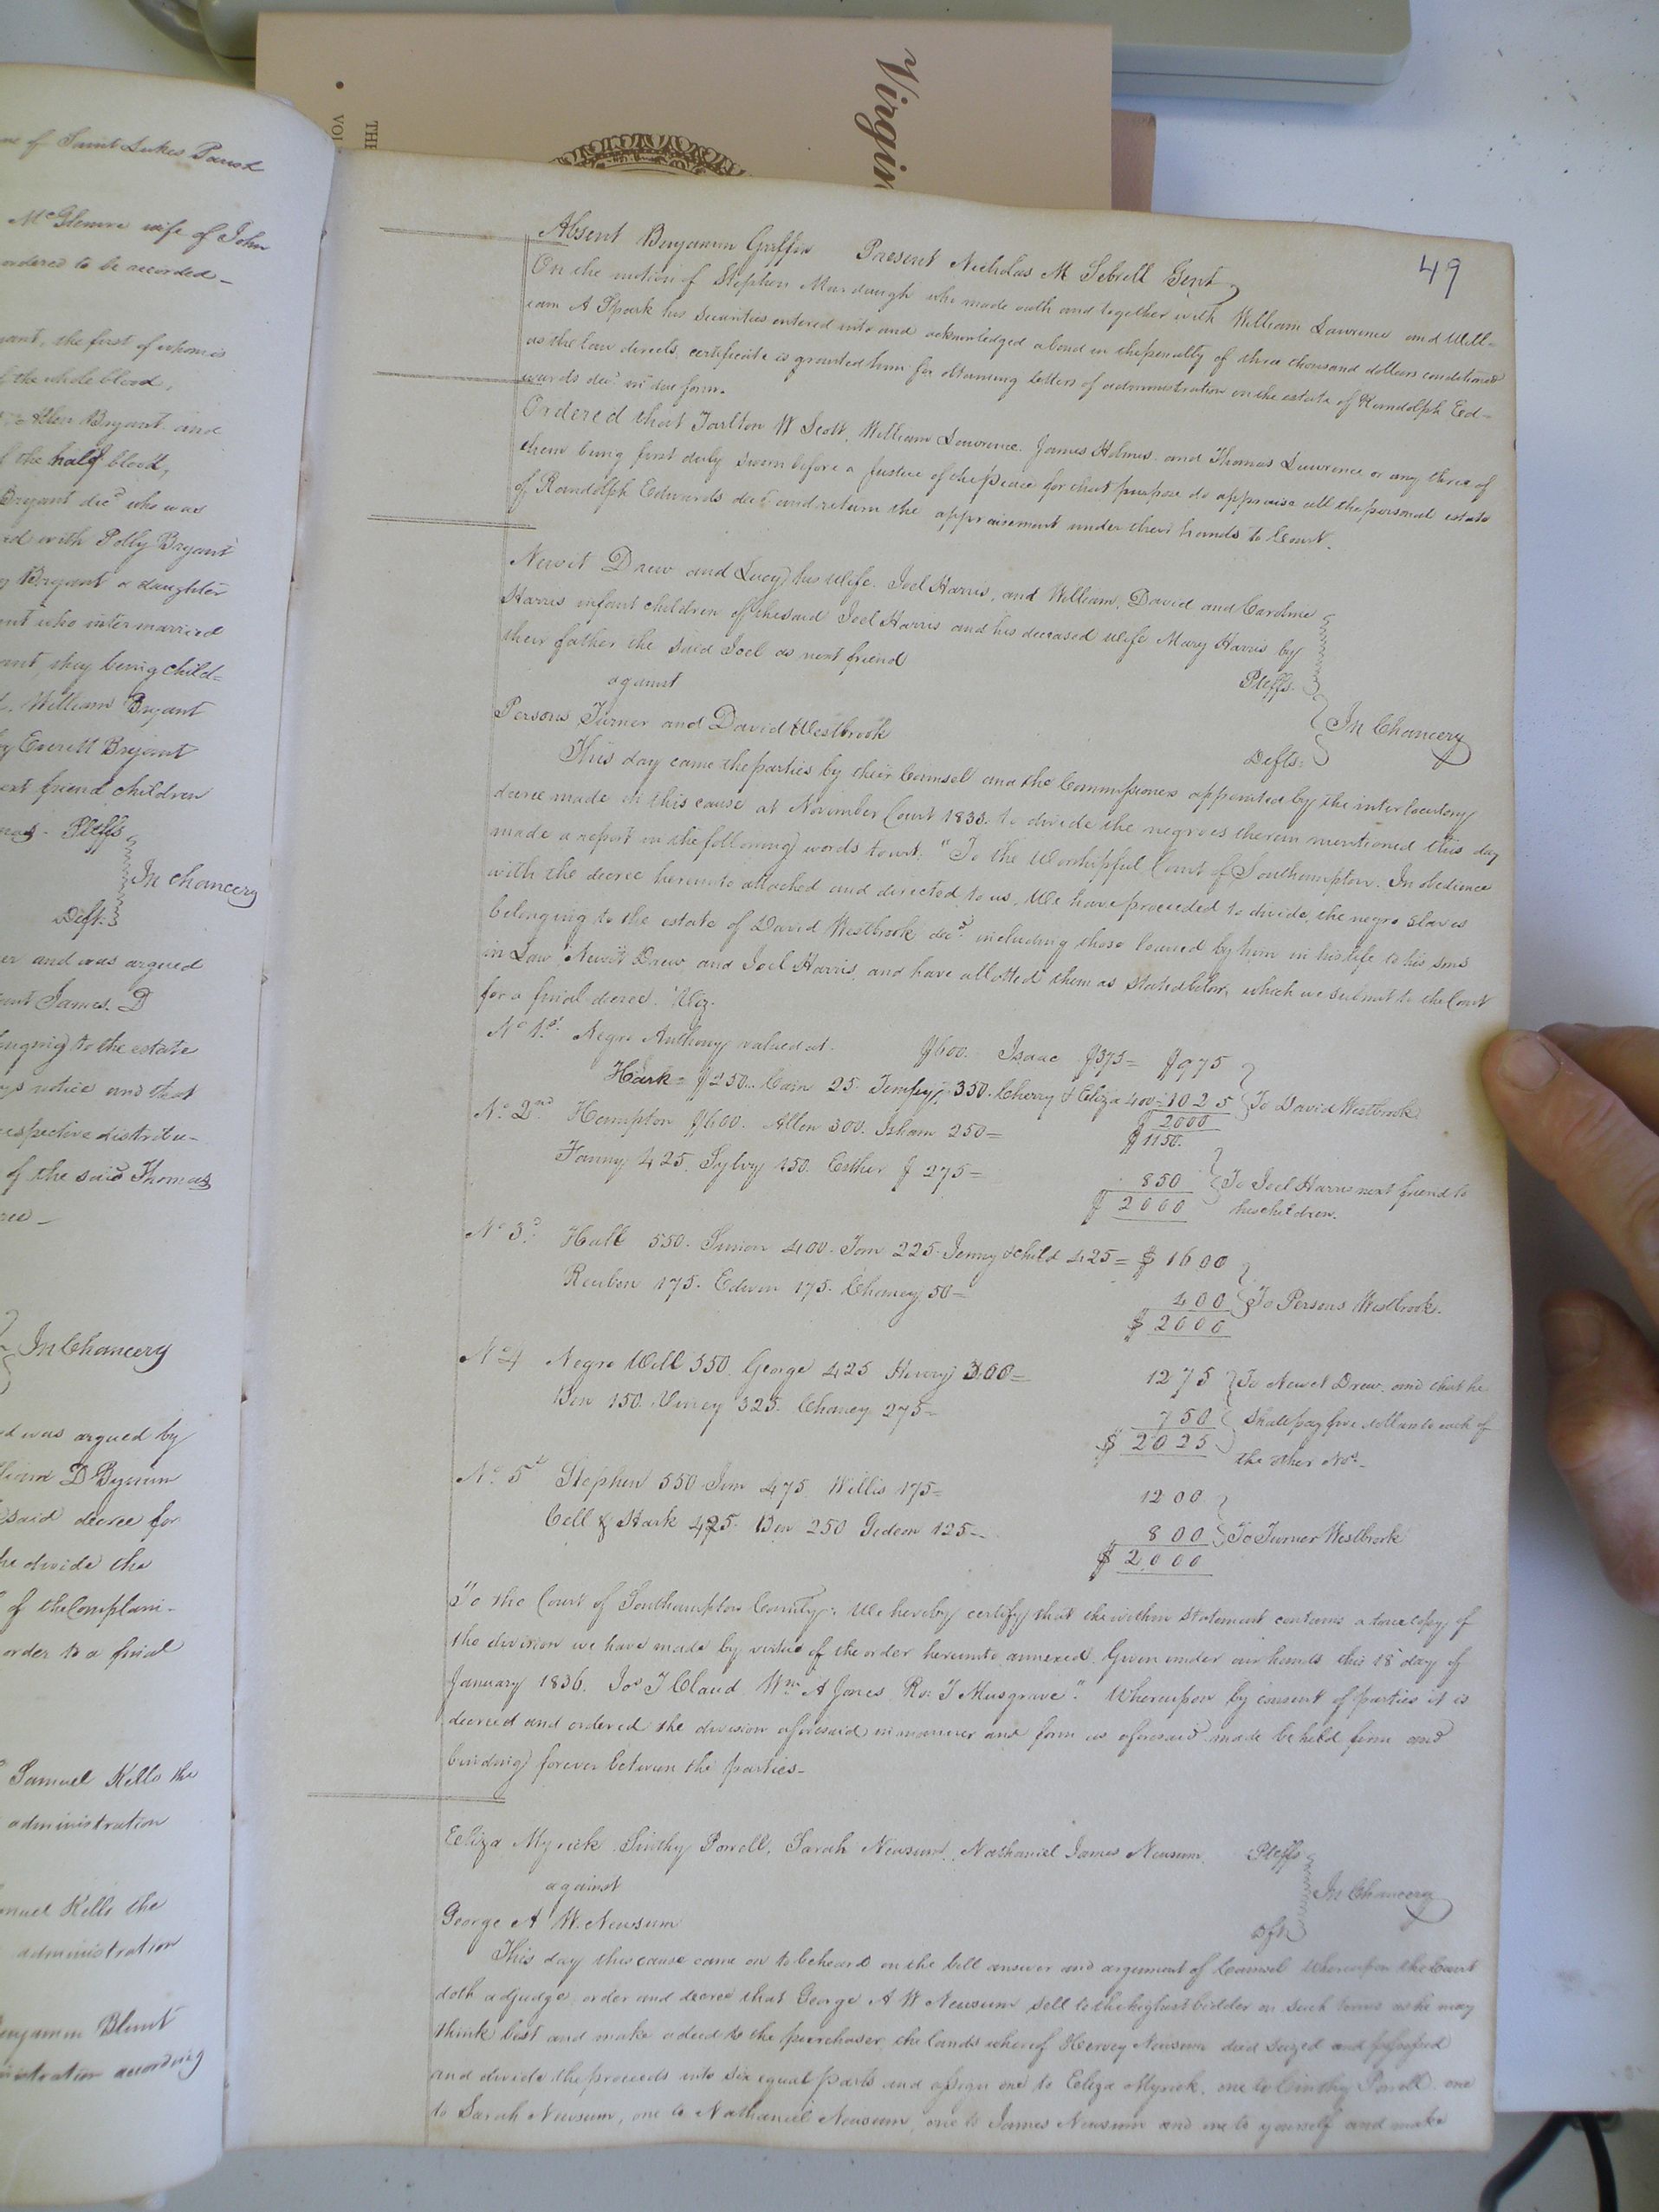 Virgin
THE
VOL
me of Saint Lukes Parish
wife of John
ordered to be recorded
the first of whom is
the whole blood,
Allen Bryant and
the half blood,
Bryant decd who was
with Polly Bryant
Bryant a daughter
who intermarried
they being child=
William Bryant
Everett Bryant
next friend children
Pltffs
In chancery
Deft.
and was argued
James. D
to the estate
notice and that
respective distribu-
of the said Thomas
In Chancery
was argued by
D Bynum
said decree for
he divide the
of the Complain-
order to a final
Samuel Kello the
administration
Samuel Kello the
administration
Benjamin Blunt
administration according
49
Absent Benjamin Griffin Present Nicholas M Sebrell Gent
On the motion of Stephen Murdaugh who made oath and together with William Lawrence and Will=
iam A Spark his Securities entered into and acknowledged a bond in the penalty of three thousand dollars conditioned
as the law directs, certificate is granted him for obtaining letters of administration on the estate of Randolph Ed=
wards decd in due form.
Ordered that Tarlton W Scott, William Lawrence. James Holmes. and Thomas Lawrence or any three of
them being first duly sworn before a Justice of the peace for that purpose do appraise all the personal estate
of Randolph Edwards decd and return the appraisement under their hands to Court.
Newit Drew and Lucy his wife. Joel Harris, and William, David and Caroline
Harris infant children of the said Joel Harris and his deceased wife Mary Harris by
their father the said Joel as next friend Pltffs.
against In Chancery
Persons, Turner and David Westbrook Defts.
This day came the parties by their Counsel and the Commissioners appointed by the interlocutory
decree made in this cause at November Court 1835. to divide the negroes therein mentioned this day
made a report in the following words towit. "To the Worshipful Court of Southampton. In obedience
with the decree hereunto attached and directed to us, We have proceeded to divide, the negro Slaves
belonging to the estate of David Westbrook decd. including those loaned by him in his life to his sons
in Law Newit Drew and Joel Harris and have allotted them as stated below, which we submit to the Court
for a final decree. Viz.
No 1st. Negro Anthony valued at. $600. Isaac $375= $975
Hark= $250.. Cain 25. Tempy 350. Cherry & Eliza 400=1025 To David Westbrook
$2000
No. 2nd Hampton $600. Allen 300. Isham 250= $1150.
Fanny 425. Sylvy 150. Esther $ 275= 850 To Joel Harris next friend to
$ 2000 his children.
No 3d. Hall 550. Simon 400. Tom 225. Jenny & child 425= $ 1600
Reuben 175. Edwin 175. Chaney 50= 400 To Persons Westbrook.
$ 2000
No 4 Negro Will 550. George 425 Henry 300= 1275 To Newit Drew. and that he
Ben 150. Viney 325. Chaney 275= 750 shall pay five dollars to each of
$ 2025 the other Nos.
No. 5th Stephen 550 Jim 475. Willis 175= 1200
Cell & Stark 425. Ben 250 Gedeon 125= 800 To Turner Westbrook
$ 2000
To the Court of Southampton County. We hereby certify that the within Statement contains a true copy of
the division we have made by virtue of the order hereunto annexed. Given under our hands this 18 day of
January 1836. Jos T Claud. Wm. A Jones. Ro: T Musgrave". Whereupon by consent of parties it is
decreed and ordered the division aforesaid in manner and form as aforesaid made be held firm and
binding forever between the parties-
Eeliza Myrick. Sinthy Powell, Sarah Newsum, Nathaniel James Newsum. Pltffs
against In Chancery
George A W. Newsum Dft
This day this cause came on to be heard on the bill answer and argument of Counsel Whereupon the Court
doth adjudge, order and decree that George A W Newsum sell to the highest bidder on such terms as he may
think best and make a deed to the purchaser, the lands whereof Hervey Newsum died seized and possessed
and divide the proceeds into six equal parts and assign one to Eeliza Myrick, one to Cinthy Powell. one
to Sarah Newsum, one to Nathaniel Newsum, one to James Newsum and one to yourself and make